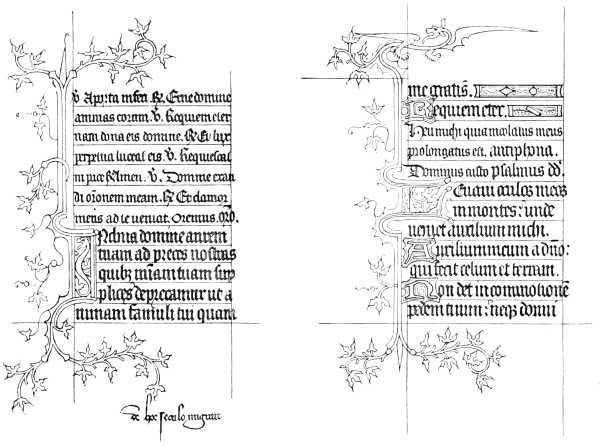 V A porta inferi. R. Erue domine
animas eorum. V. Requiem eter
nam dona eis domine. R. Et lux
perpetua luceat eis. V. Requiescant
in pace. Amen. V. Domine exau
di orōnem meam. R. Et clamor
meus ad te veniat. Oremus. Orō.
Inclina domine aurem
tuam ad preces nostras
quibz mīam tuam sup
plices deprecamur ut a
nimam famuli tui quam
de hoc seculo migrare
me gratis.
Requiem eter.
Heu michi quia incolatus meus
prolongatus est. antiphona.
Dominus custo psalmus dd.
Levavi oculos meos
in montes: unde
veniet auxilium michi.
Auxilium meum a dño:
qui fecit celum et terram.
Non det in comotionē
pedem tuum: neqz dormi